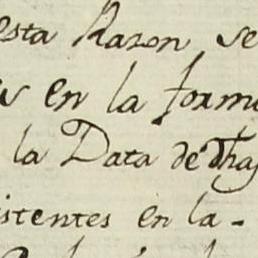 esta Razon, se
s en la form
la Data de dha
istentes en la-